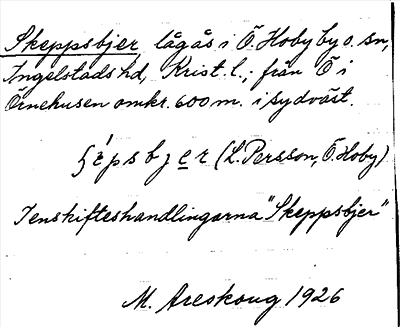 Skeppsbjer lågås i Ö. Hoby by o. sn,
Ingelstads hd, Krist. l.; från Ö i
Örnehusen omkr. 600 m. i sydväst.
(L. Persson, Ö. Hoby)
I enskifteshandlingarna "Skeppsbjer"
M. Areskoug 1926